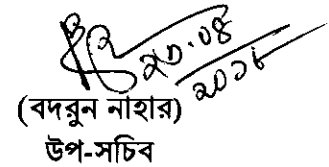 ২৩.০৪
২০১৮
(বদরুন নাহার)
উপ-সচিব